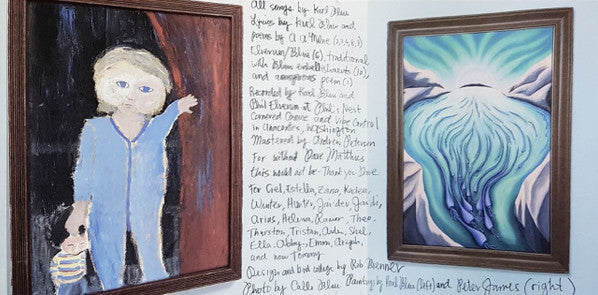 All songs by Karl Blau
Lyrics by Karl Blau and
poems by A A Milne (2,3,4,8,9)
Elverum/Blau (6), traditional
with Blau embellishments (10),
and anonymous poem (1)
Recorded by Karl Blau and
Phil Elverum at Phil's Nest
Cornered Cove and Vibe Control
in Anacortes, Washington
Mastered by Andrew Peterson
For without Dave Matthies
this would not be - Thank you Dave
For Ciel, Estella, Zana,
Wunter, Hunter, Jai dev,
Arias, Helena, Theo
Thurston, Tristan, Shel,
Ella
and now Tommy
Design and bird collage by Rob Bonner
Photo by Calle Blau Paintings by Karl Blau (left) and Peter James (right)